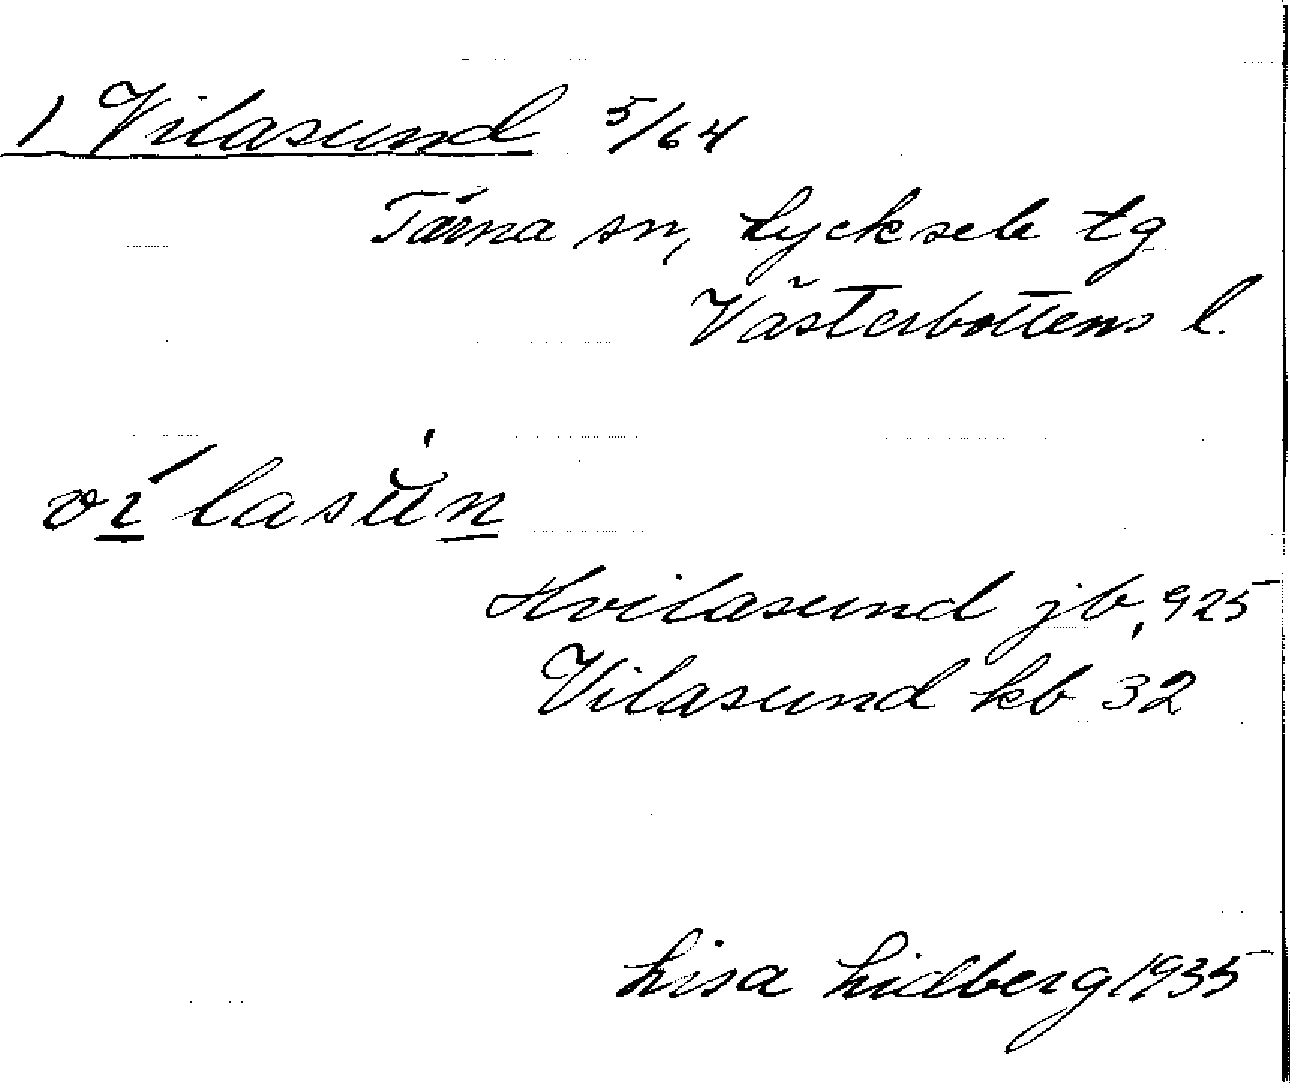 1 Vilasund 5/64
Tärna sn, Lycksele tg
Västerbottens l.
ví lasu̇n
Hvilasund jb, 925
Vilasund kb 32
Lisa Lidberg 1935